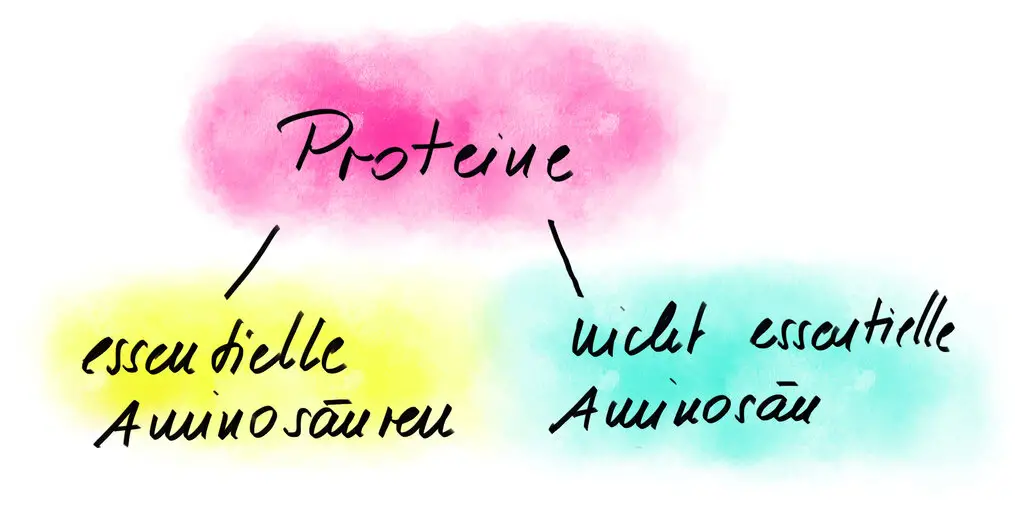 Proteine
essentielle
Aminosäuren
nicht essentielle
Aminosäu